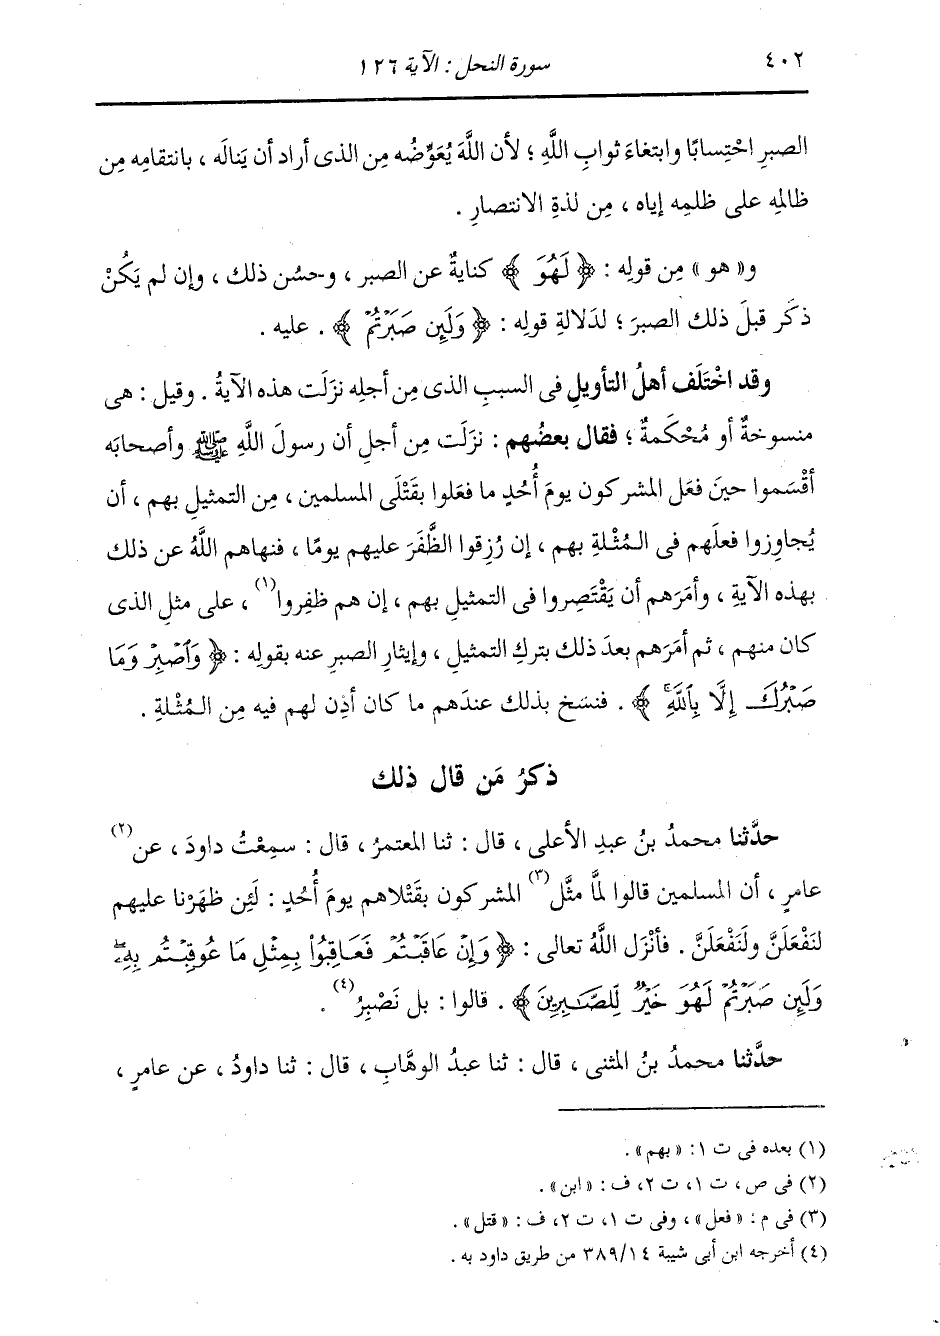 ٤٠٢
سورة النحل : الآية ١٢٦
الصبرِ احْتِسابًا وابتغاءَ ثوابِ اللَّهِ ؛ لأن اللَّهَ يُعَوِّضُه مِن الذى أراد أن يَنالَه ، بانتقامِه مِن
ظالمِه على ظلمِه إياه ، مِن لذةِ الانتصارِ .
و« هو » مِن قولِه : ﴿ لَهُوَ ﴾ كنايةٌ عن الصبرِ ، وحسُن ذلك ، وإن لم يَكُنْ
ذكَر قبلَ ذلك الصبرَ ؛ لدَلالةِ قولِه : ﴿ وَلَئِن صَبَرْتُمْ ﴾ . عليه .
وقد اخْتَلَف أهلُ التأويلِ فى السببِ الذى مِن أجلِه نزَلَت هذه الآيةُ . وقيل : هى
منسوخةٌ أو مُحْكَمةٌ ؛ فقال بعضُهم : نزَلَت مِن أجلِ أن رسولَ اللَّهِ ﷺ وأصحابَه
أقْسَموا حينَ فعَل المشركون يومَ أُحُدٍ ما فعَلوا بقَتْلَى المسلمين ، مِن التمثيلِ بهم ، أن
يُجاوِزوا فعلَهم فى المُثْلةِ بهم ، إن رُزِقوا الظَّفَرَ عليهم يومًا ، فنهاهم اللَّهُ عن ذلك
بهذه الآيةِ ، وأمَرَهم أن يَقْتَصِروا فى التمثيلِ بهم ، إن هم ظفِروا(١) ، على مثلِ الذى
كان منهم ، ثم أمَرَهم بعدَ ذلك بتركِ التمثيلِ ، وإيثارِ الصبرِ عنه بقولِه : ﴿ وَٱصْبِرْ وَمَا
صَبْرُكَ إِلَّا بِٱللَّهِ ﴾ . فنسَخ بذلك عندَهم ما كان أذِن لهم فيه مِن المُثْلةِ .
ذكرُ مَن قال ذلك
حدَّثنا محمدُ بنُ عبدِ الأعلى ، قال : ثنا المعتمرُ ، قال : سمِعْتُ داودَ ، عن(٢)
عامرٍ ، أن المسلمين قالوا لمَّا مثَّل(٣) المشركون بقَتْلاهم يومَ أُحُدٍ : لَئِن ظهَرْنا عليهم
لنَفْعَلَنَّ ولنَفْعَلَنَّ . فأنْزَل اللَّهُ تعالى : ﴿ وَإِنْ عَاقَبْتُمْ فَعَاقِبُواْ بِمِثْلِ مَا عُوقِبْتُم بِهِۦۖ
وَلَئِن صَبَرْتُمْ لَهُوَ خَيْرٌ لِّلصَّـٰبِرِينَ ﴾ . قالوا : بل نَصْبِرُ(٤) .
حدَّثنا محمدُ بنُ المثنى ، قال : ثنا عبدُ الوهَّابِ ، قال : ثنا داودُ ، عن عامرٍ ،
(١) بعده فى ت ١: « بهم » .
(٢) فى ص ، ت ١، ت ٢، ف : « ابن » .
(٣) فى م : « فعل » ، وفى ت ١، ت ٢، ف : « قتل » .
(٤) أخرجه ابن أبى شيبة ٣٨٩/١٤ من طريق داود به .